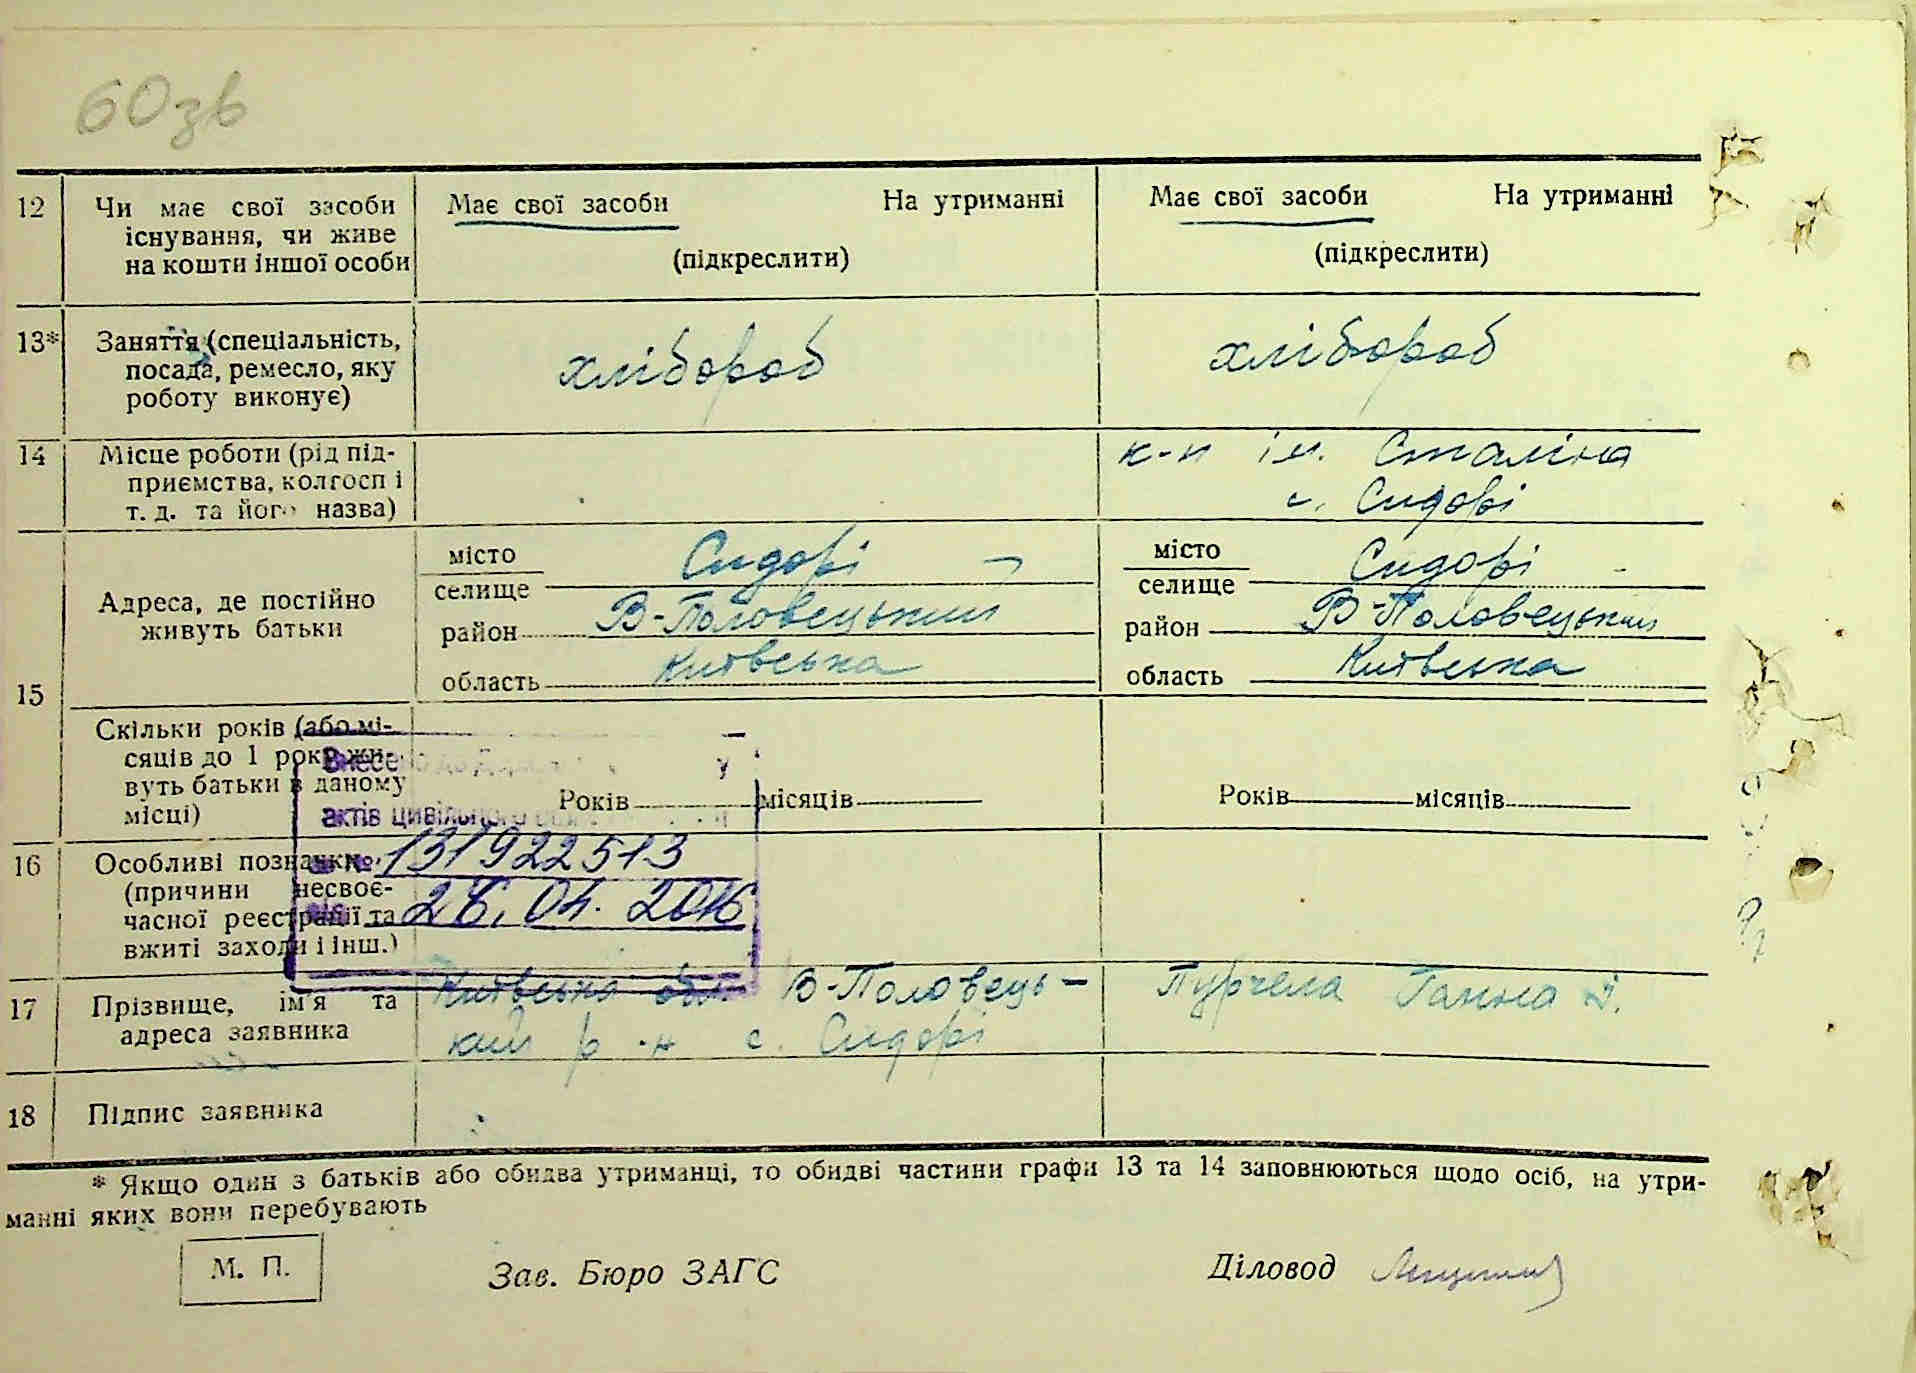 60зв
12 Чи має свої засоби існування, чи живе на кошти іншої особи
Має свої засоби На утриманні
(підкреслити)
Має свої засоби На утриманні
(підкреслити)
13* Заняття (спеціальність, посада, ремесло, яку роботу виконує)
хлібороб
хлібороб
14 Місце роботи (рід підприємства, колгосп і т. д. та його назва)
к-п ім. Сталіна
с. Сидорі
15 Адреса, де постійно живуть батьки
місто
селище Сидорі
район В-Половецький
область Київська
місто
селище Сидорі
район В-Половецький
область Київська
Скільки років (або місяців до 1 року живуть батьки в даному місці)
Років місяців
Років місяців
Внесено
актів цивільного
за № 131922513
28.04.2016
16 Особливі позначки (причини несвоєчасної реєстрації та вжиті заходи і інш.)
17 Прізвище, ім'я та адреса заявника
Київська обл. В-Половець-
кий р-н с. Сидорі
Ганна І.
18 Підпис заявника
* Якщо один з батьків або обидва утриманці, то обидві частини графи 13 та 14 заповнюються щодо осіб, на утри-
манні яких вони перебувають
М. П.
Зав. Бюро ЗАГС
Діловод